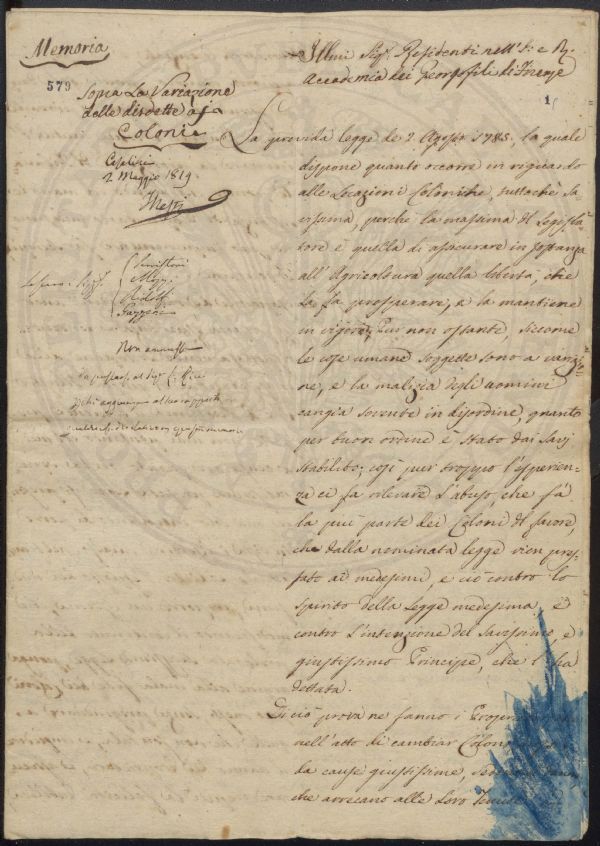 Memoria
579
Sopra La Variazione
delle disdette a i
Coloni
2 Maggio 1819
Non ammessa
Illmi Sigri Residenti nell'I. e R.
Accademia dei Georgofili di Firenze
1
La provida legge de 2 Agosto 1785, la quale
dispone quanto occorre in riguardo
alle Locazioni Coloniche, tuttochè sa=
vissima, perchè la massima del Legisla=
tore è quella di assicurare in sostanza
all'Agricoltura quella libertà, che
la fa prosperare, e la mantiene
in vigore; Pur non ostante, siccome
le cose umane soggette sono a variazio=
ne, e la malizia degli uomini
cangia sovente in disordine, quanto
per buon ordine è stato dai Savj
stabilito; così pur troppo l'esperien=
za ci fa rilevare l'abuso, che fà
la più parte dei Coloni del favore,
che dalla nominata legge vien pres=
tato ai medesimi, e ciò contro lo
spirito della Legge medesima, e
contro l'intenzione del Savissimo, e
giustissimo Principe, che l'ha
dettata.
Di ciò prova ne fanno i
nell'atto di cambiar Colono
da cause giustissime,
che arrecano alle Loro